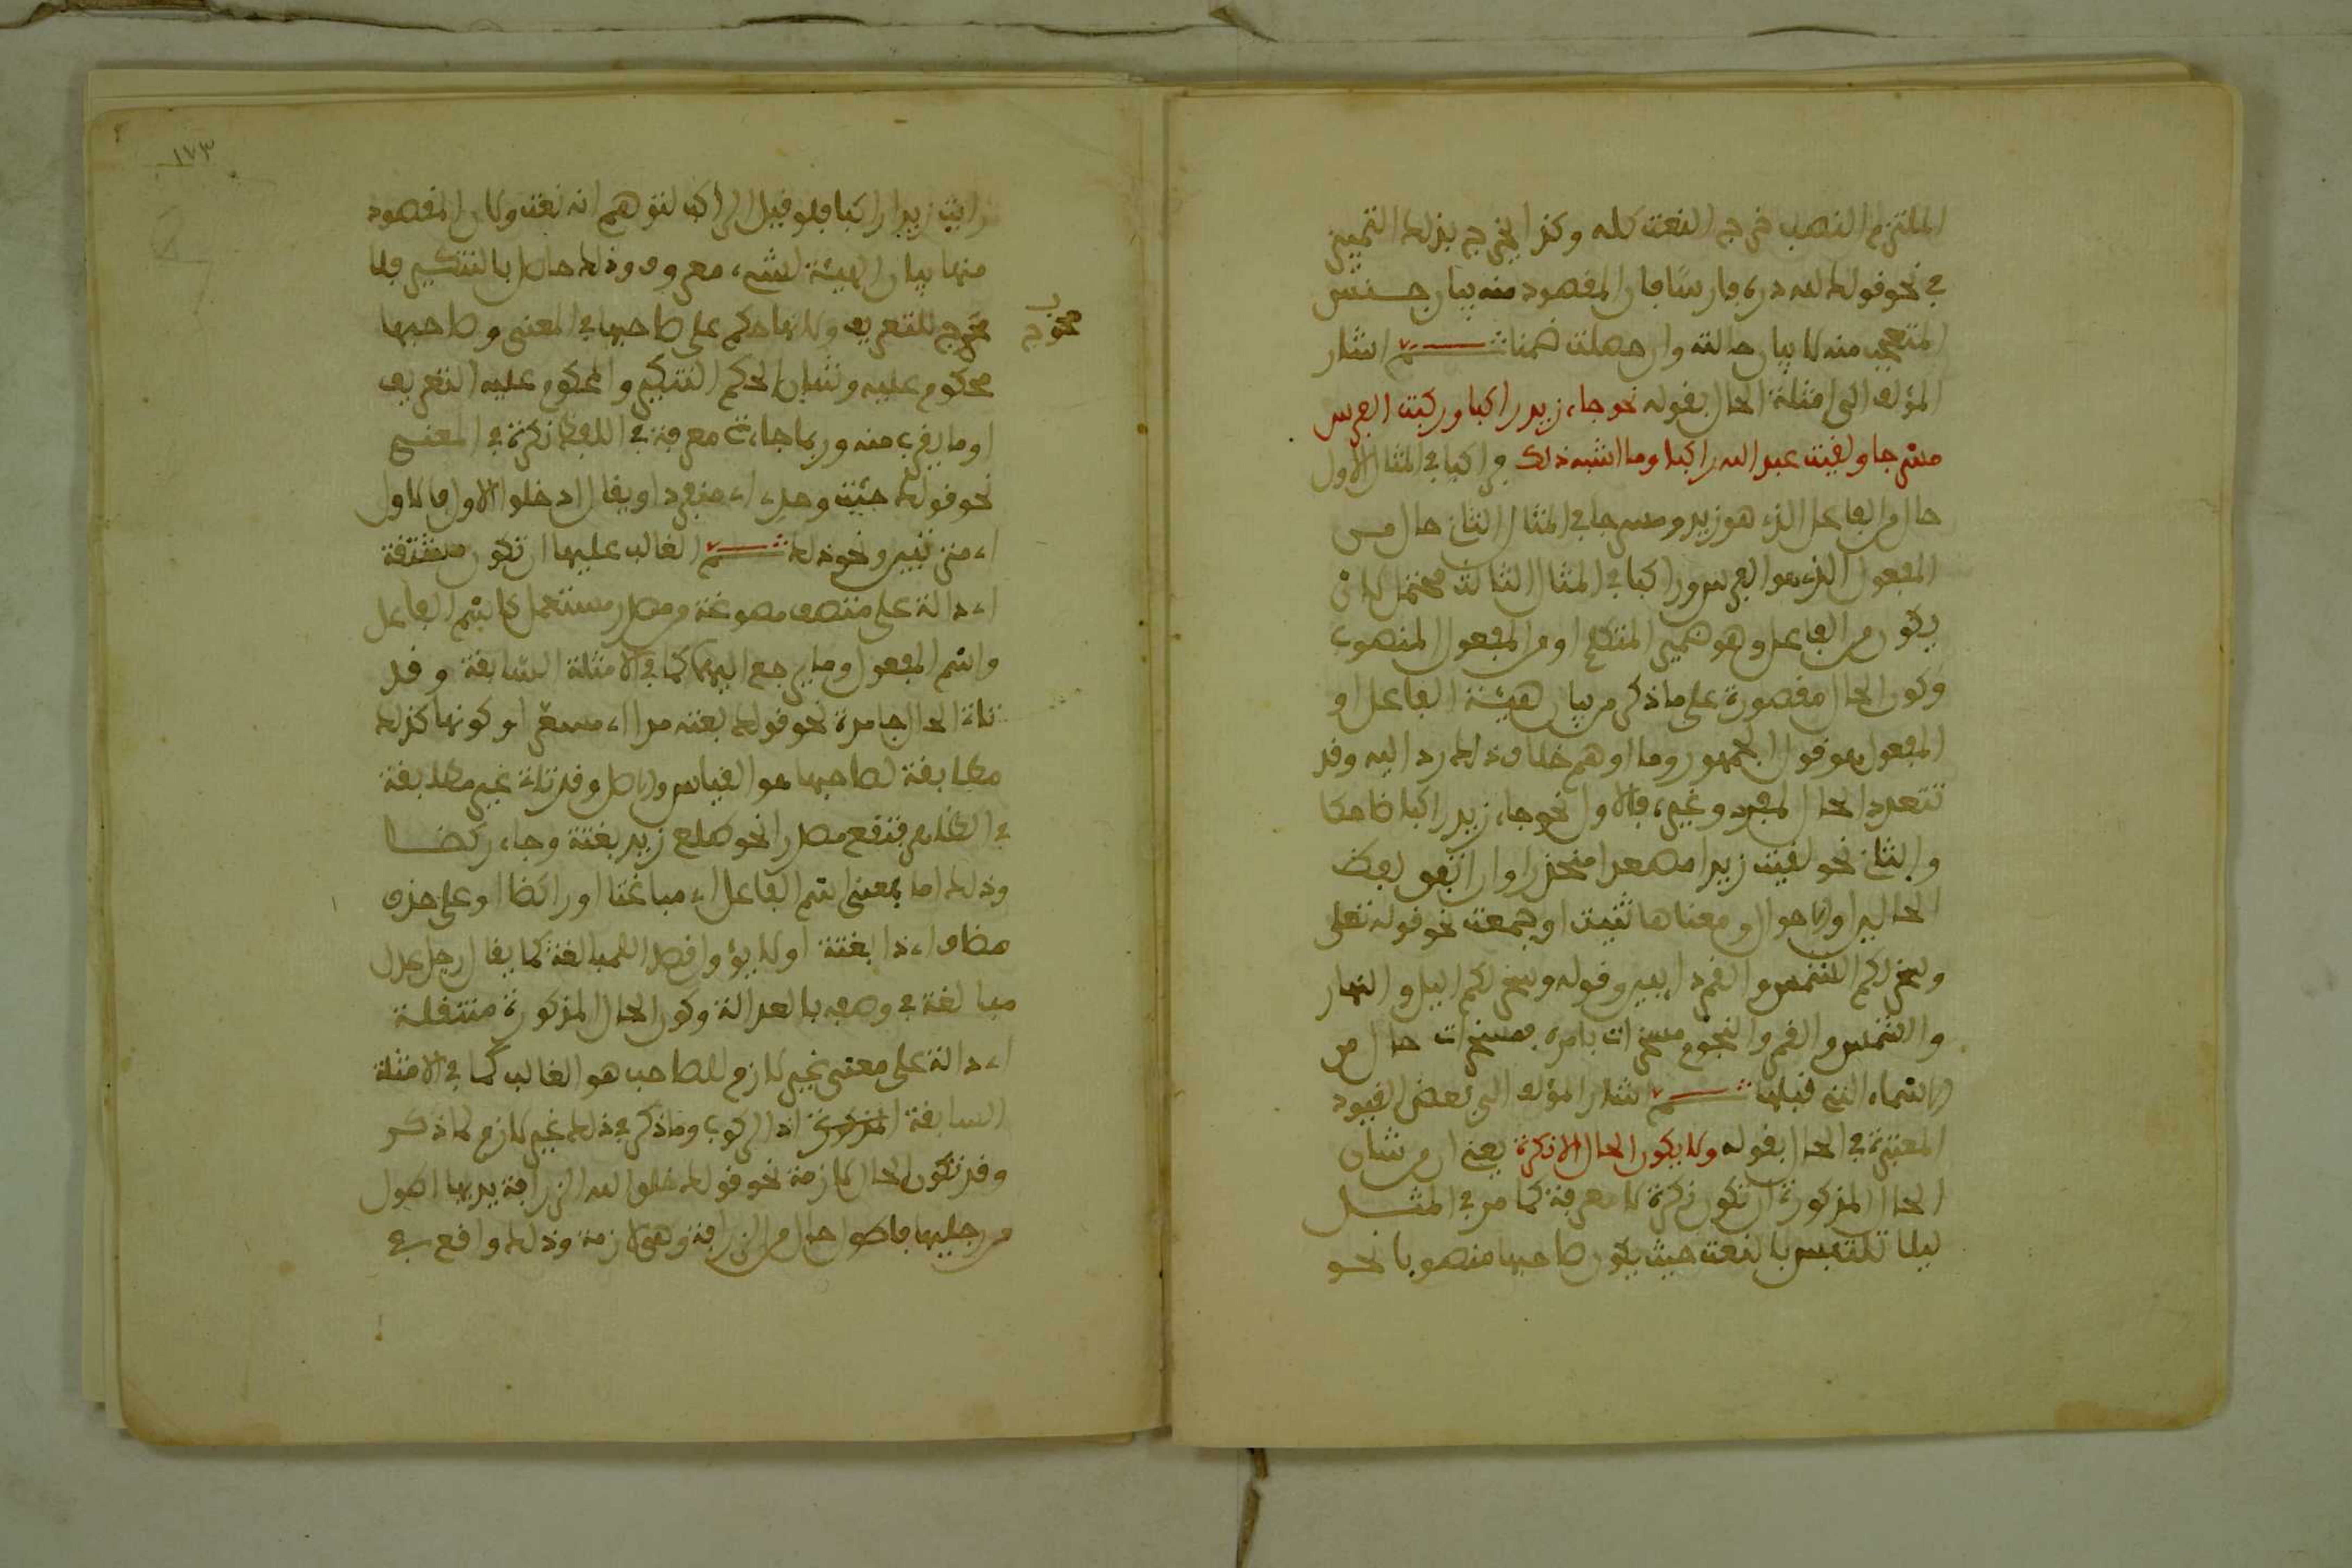 الملتزم النصب فخرج النعت كله وكذا يخرج بذلك التمييز
في نحو قولك لله دره فارسا فان المقصود منه بيان جنس
المتعجب منه لا بيان حالته وان حصلت ضمنا ثـم اشار
المؤلف الى امثلة الحال بقوله نحو جاء زيد راكبا وركبت الفرس
مسرجا ولقيت عبد الله راكبا وما اشبه ذلك فراكبا في المثال الاول
حال من الفاعل الذي هو زيد ومسرجا في المثال الثاني حال من
المفعول الذي هو الفرس وراكبا في المثال الثالث محتمل لان
يكون من الفاعل وهو ضمير المتكلم او من المفعول المنصوب
وكون الحال مقصورة على ما ذكر من بيان هيئة الفاعل او
المفعول هو قول الجمهور وما اوهم خلاف ذلك رد اليه وقد
تتعدد الحال لمفرد وغيره فالاول نحو جاء زيد راكبا ضاحكا
والثاني نحو لقيت زيدا مصعدا منحدرا وان اتفق لفظ
الحالين او الاحوال ومعناها ثنيت او جمعت نحو قوله تعلى
وسخر لكم الشمس والقمر دايبين وقوله وسخر لكم اليل والنهار
والشمس والقمر والنجوم مسخرات بامره فمسخرات حال من
الاسماء التي قبلها ثـم اشار المؤلف الى بعض القيود
المعتبرة في الحال بقوله ولا يكون الحال الا نكرة يعني ان من شان
الحال المذكورة ان تكون نكرة لا معرفة كما مر في المثـل
ليلا تلتبس بالنعت حيث يكون صاحبها منصوبا نحو
١٧٣
رايت زيدا راكبا فلو قيل الراكب لتوهم انه نعت ولان المقصود
منها بيان الهيئة لشيء معروف وذلك حاصل بالتنكير فلا
مخرج للتعريف ولانها حكم على صاحبها في المعنى وصاحبها
محوج
محكوم عليه وشان الحكم التنكير والمحكوم عليه التعريف
او ما يقرب منه وربما جاءت معرفة في اللفظ نكرة في المعنى
نحو قولك جئت وحدي اي منفردا ويقال ادخلوا الاول فالاول
اي مترتبين ونحو ذلك ثـم الغالب عليها ان تكون مشتقة
اي دالة على متصف مصوغة من مصدر مستعمل كاسم الفاعل
واسم المفعول وما يرجع اليهما كما في الامثلة السابقة وقد
تاتي الحال جامدة نحو قولك بعته مدا اي مسعرا وكونها كذلك
مطابقة لصاحبها هو القياس والاصل وقد تاتي غير مطابقة
في الظاهر فتقع مصدرا نحو طلع زيد بغتة وجاء ركضـا
وذلك اما بمعنى اسم الفاعل اي مباغتا او راكضا او على حذف
مضاف اي ذا بغتة او لا يؤول قصدا للمبالغة كما يقال رجل عدل
مبالغة في وصفه بالعدالة وكون الحال المذكورة منتقلة
اي دالة على معنى غير لازم للصاحب هو الغالب كما في الامثلة
السابقة المذكورة اذ الركوب وما ذكر في ذلك غير لازم لما ذكر
وقد تكون الحال لازمة نحو قولك خلق الله الزرافة يديها اطول
من رجليها فاطول حال من الزرافة وهي لازمة وذلك واقع في